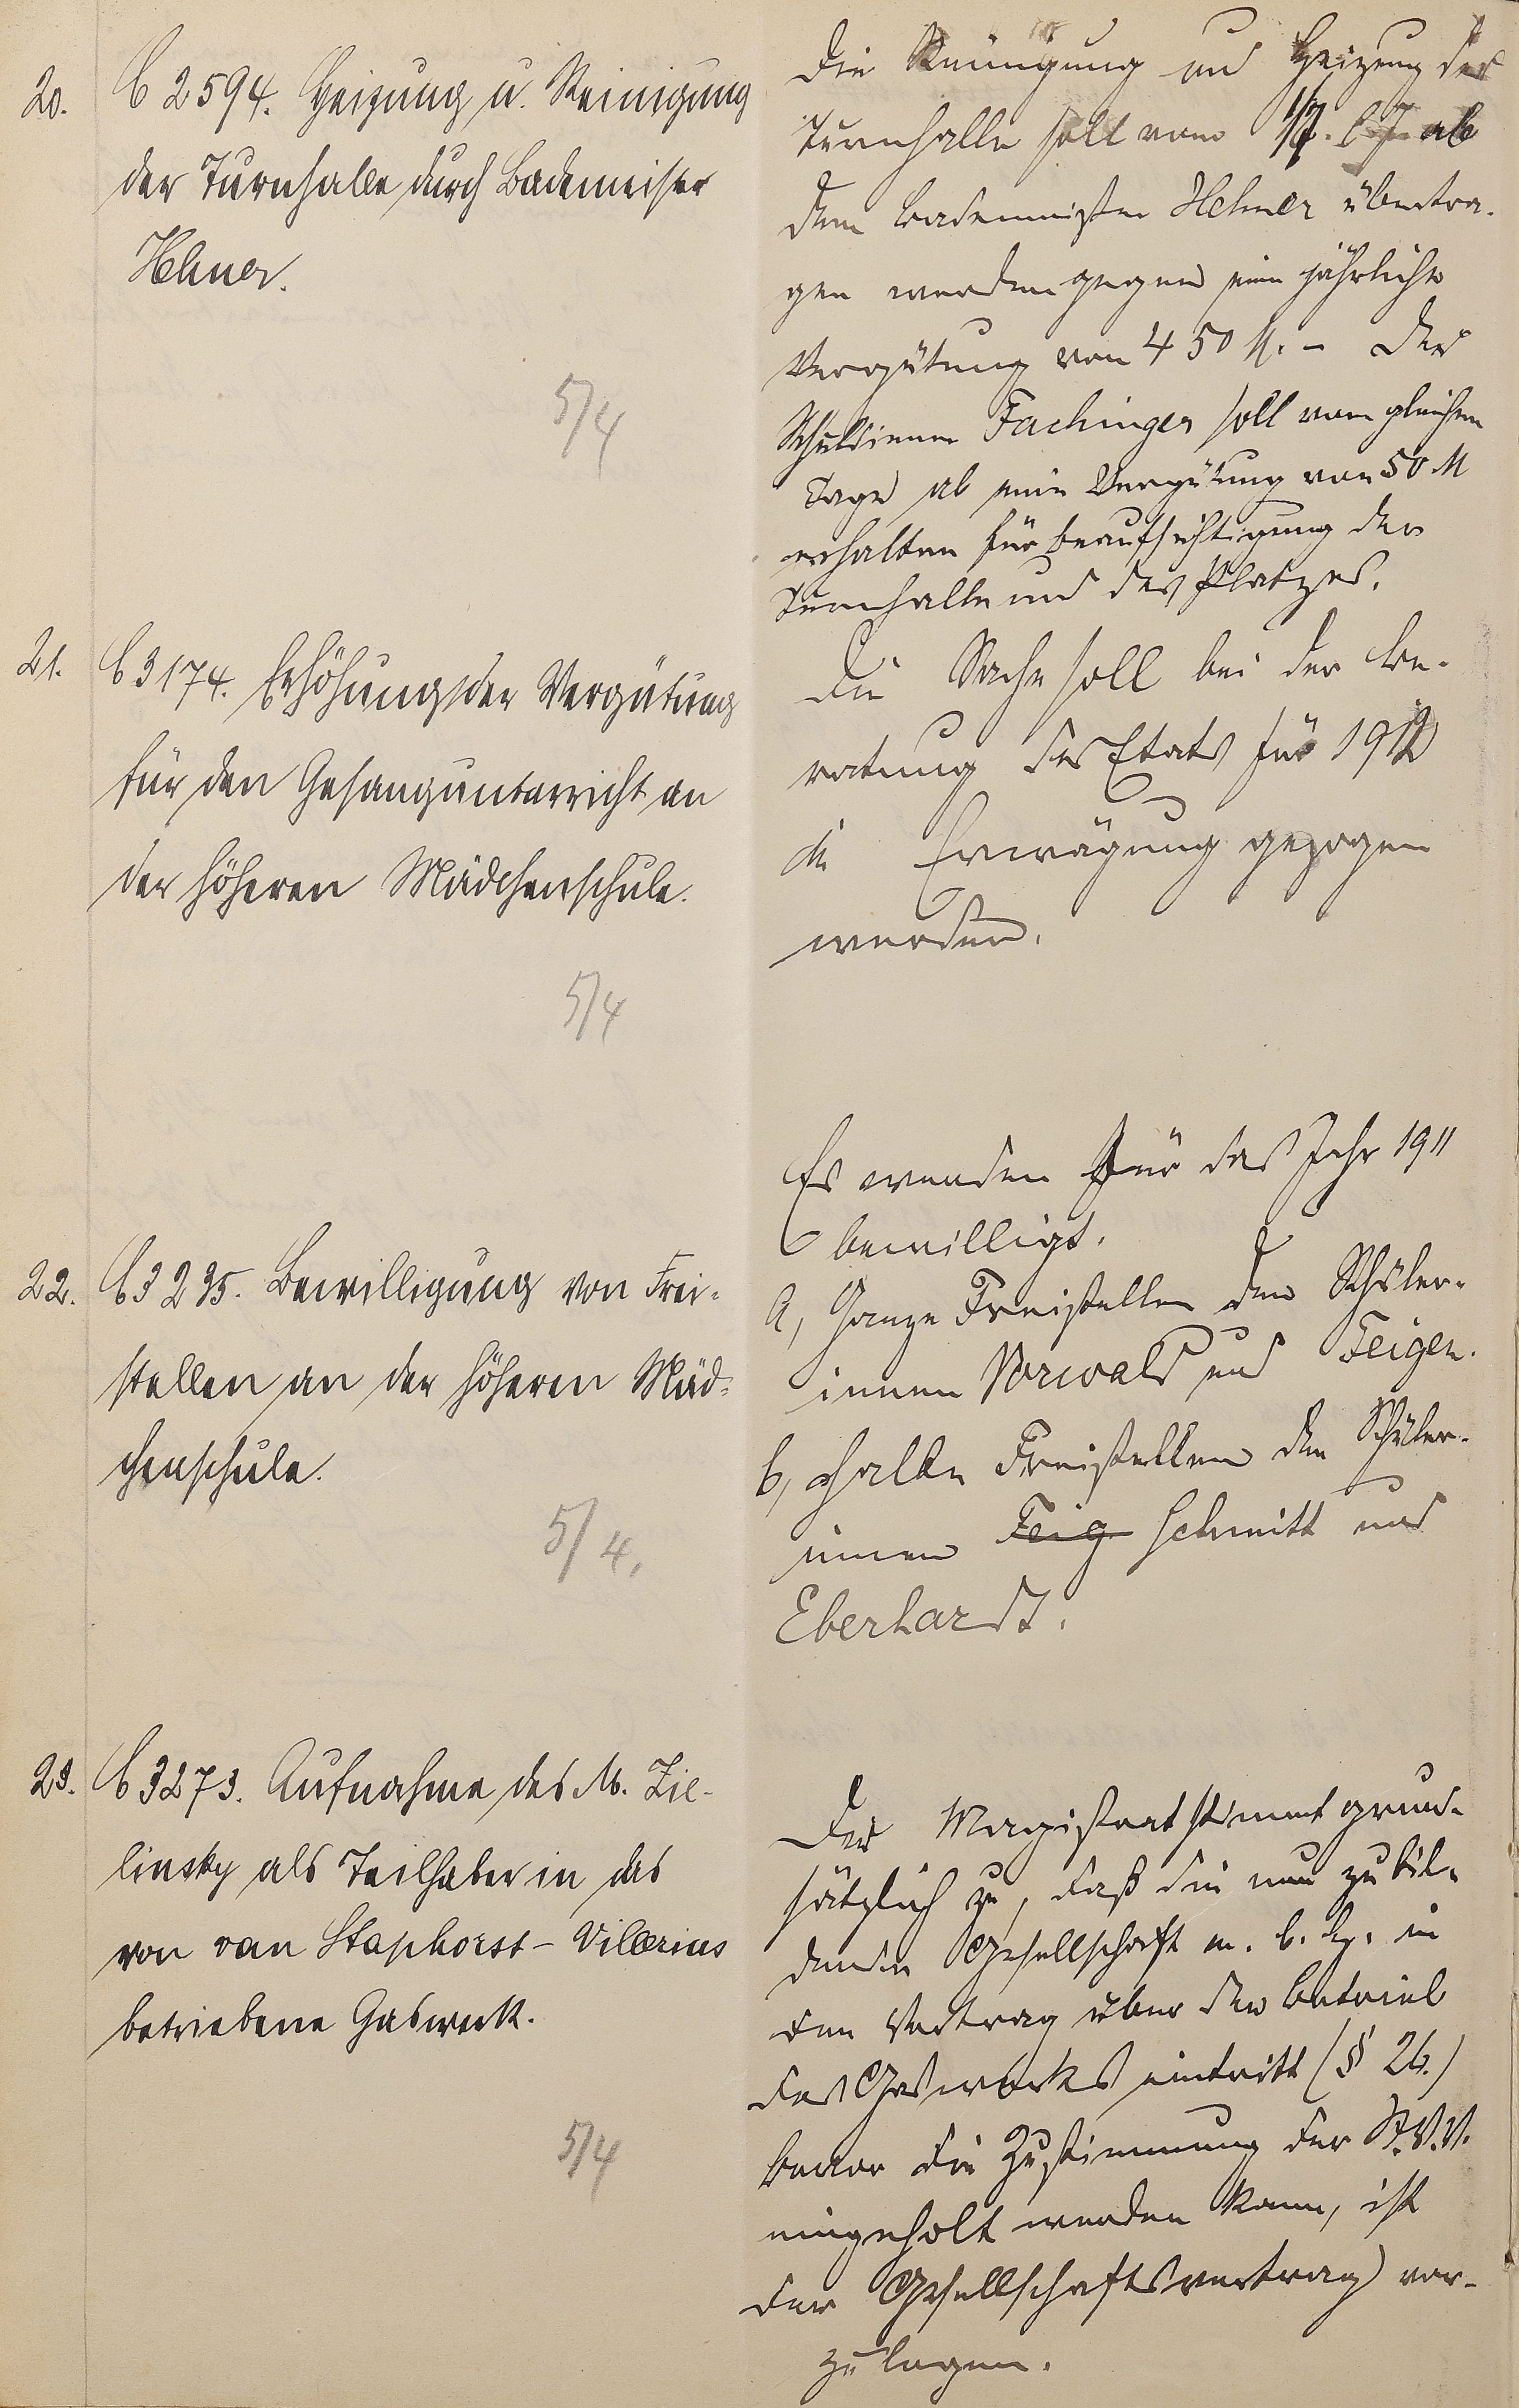 20.
C 2594. Heizung u. Reinigung
der Turnhalle durch Bademeister
Hehner.
5/4
Die Reinigung und Heizung der
Turnhalle soll vom ab
dem Bademeister Hehner übertra-
gen werden gegen eine jährliche
Vergütung von 450 M. - Der
Schuldiener Fachinger soll vom gleichen
Tage ab eine Vergütung von 50 M
erhalten für Beaufsichtigung der
Turnhalle und des Platzes.
21.
C 3174. Erhöhung der Vergütung
für den Gesangunterricht an
der höheren Mädchenschule.
5/4
Die Sache soll bei der Be-
ratung des Etats für 1912
in Erwägung gezogen
werden.
22.
C 3235. Bewilligung von Frei-
stellen an der höheren Mäd-
chenschule.
5/4.
Es werden für das Jahr 1911
bewilligt.
a, Ganze Freistellen den Schüler-
innen Vorwald und Feigen.
b, halbe Freistellen den Schüler-
innen Feig Schmitt und
Eberhardt.
23.
C 3273. Aufnahme des M. Zie-
linsky als Teilhaber in das
von van Staphorst-Vilarius
betriebene Gaswerk.
5/4
Der Magistrat stimmt grund-
sätzlich zu, daß die neu zu bil-
dende Gesellschaft m. b. H. in
den Vertrag über den Betrieb
des Gaswerks eintritt (§ 26.)
bevor die Zustimmung der St.V.V.
eingeholt werden kann, ist
der Gesellschaftsvertrag vor-
zulegen.